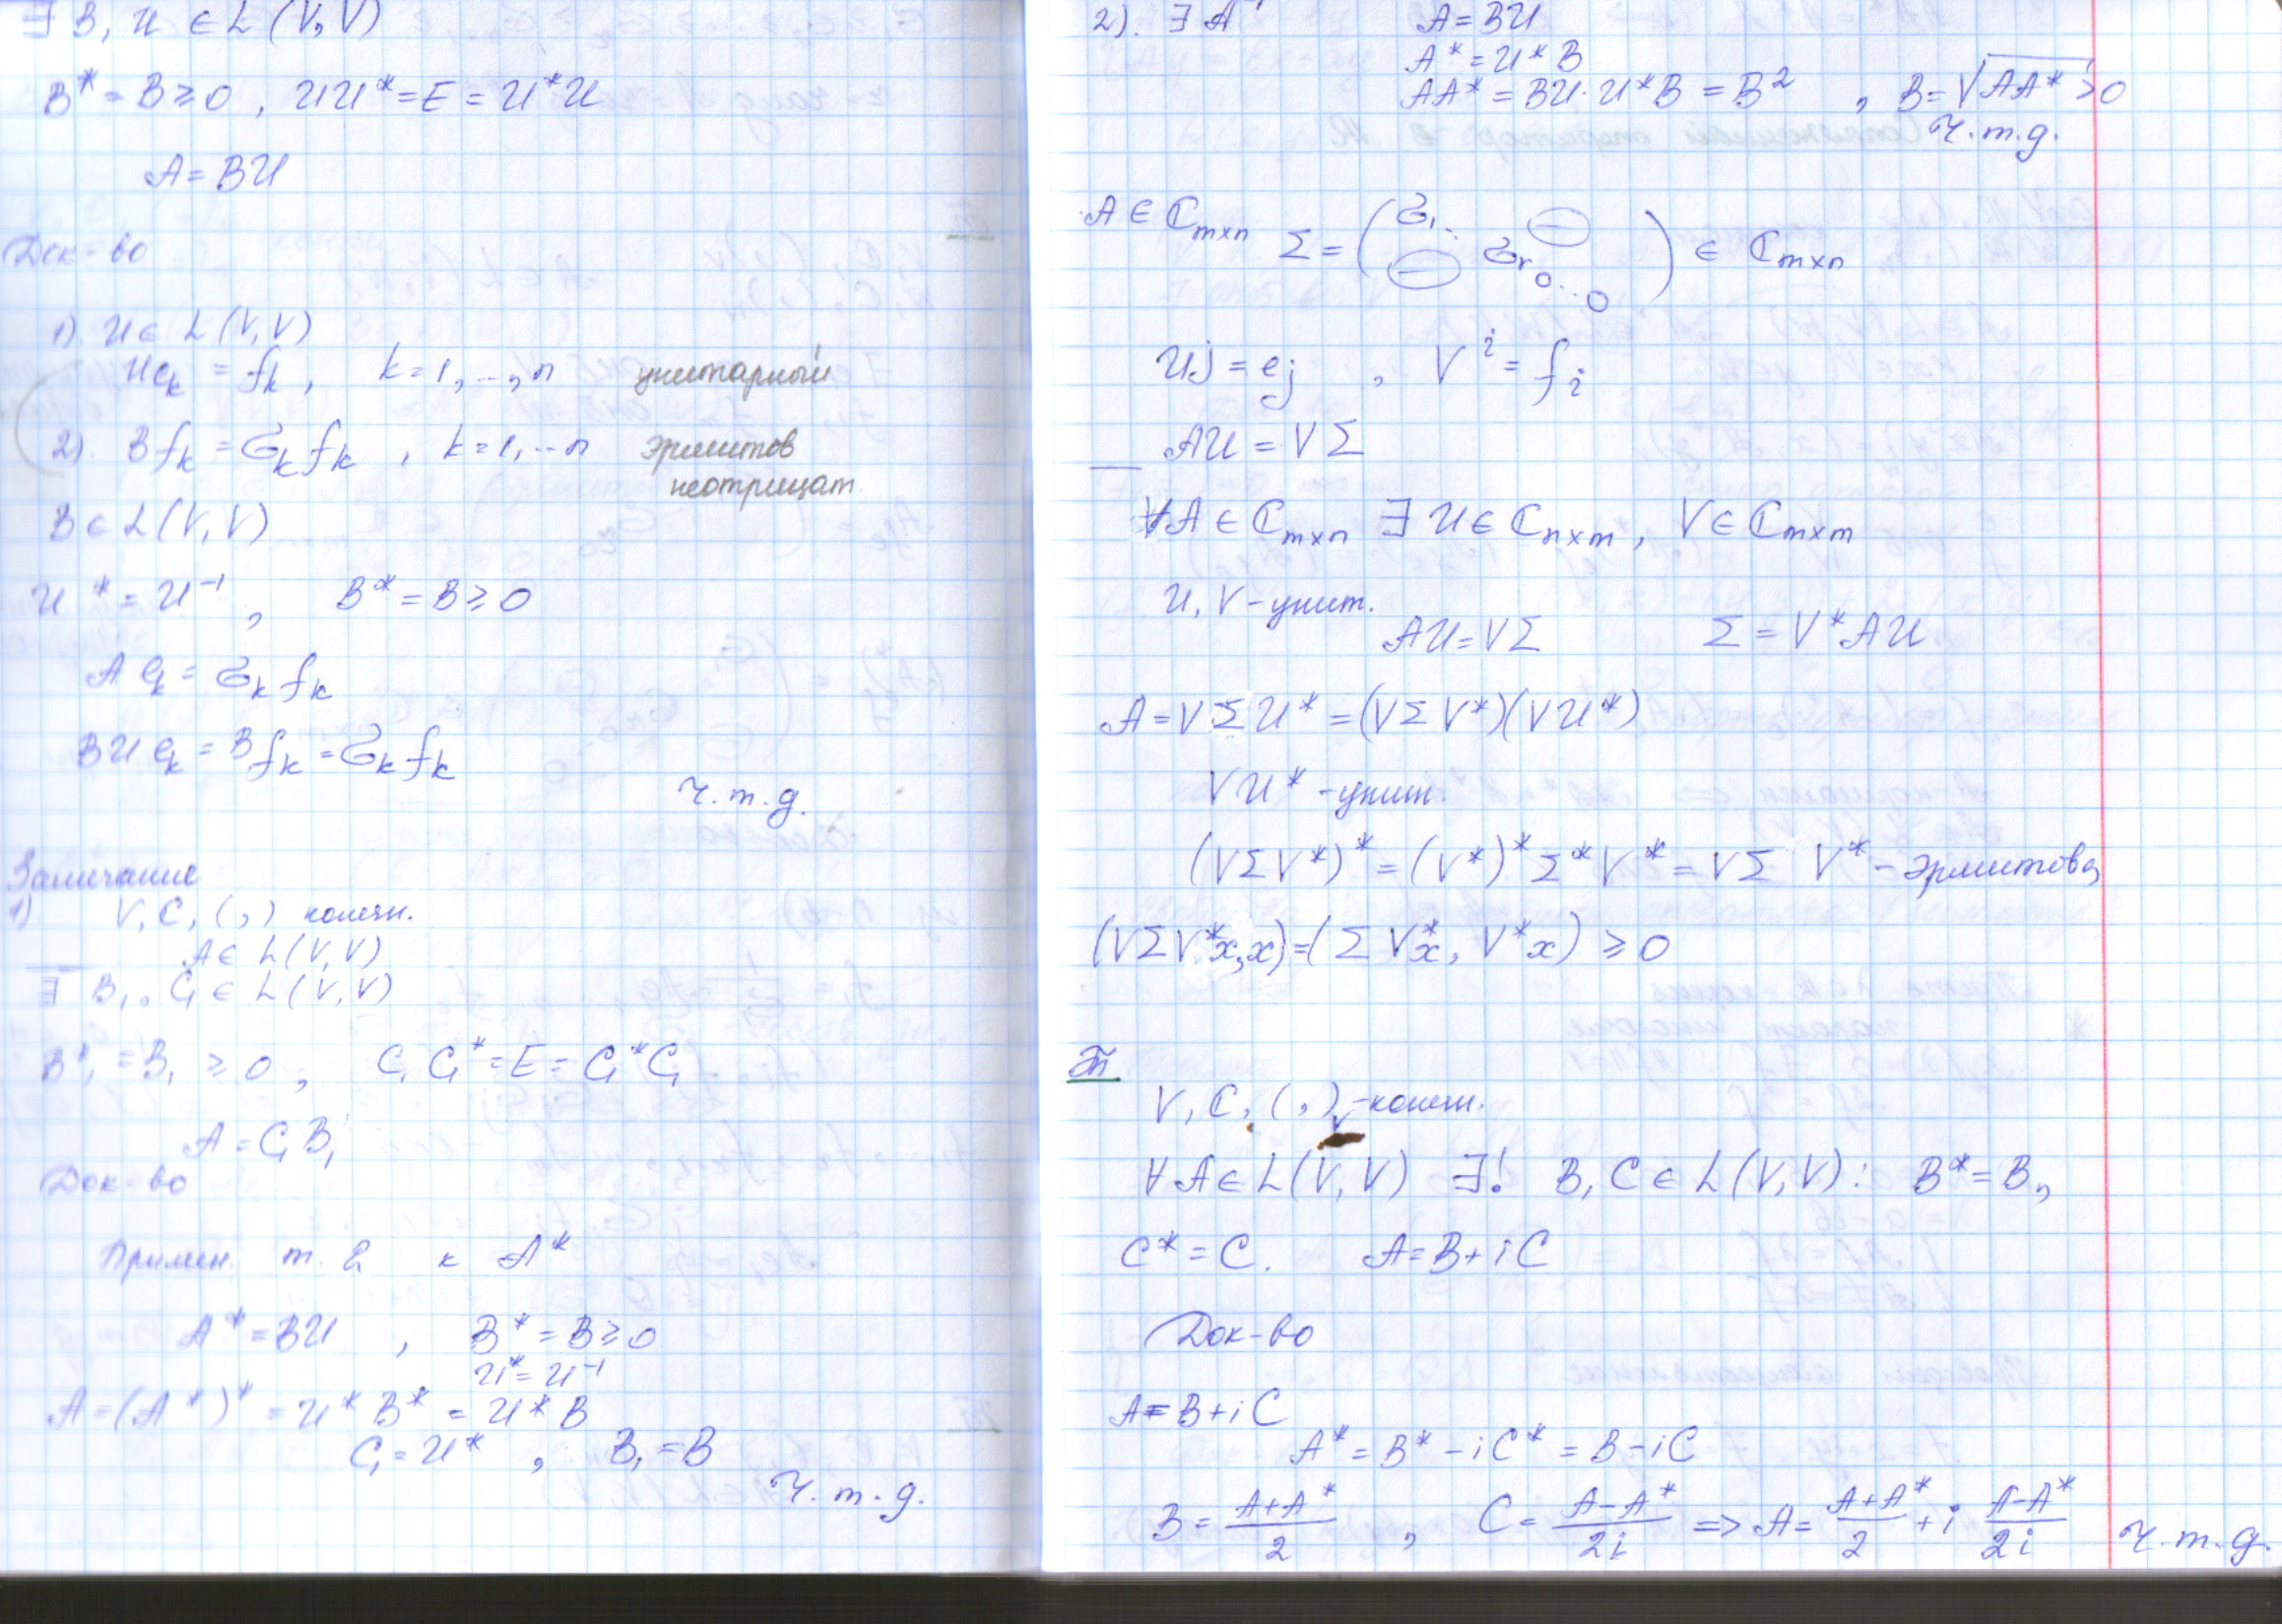 ∃ B, U ∈ L(V,V)
B* = B ≥ 0, UU* = E = U*U
A = BU
Док-во
1). U ∈ L(V,V)
Ue_k = f_k, k=1,...,n унитарный
2). Bf_k = σ_k f_k, k=1,...n эрмитов
неотрицат.
B ∈ L(V,V)
U* = U⁻¹, B* = B ≥ 0
A e_k = σ_k f_k
BU e_k = B f_k = σ_k f_k
Ч.т.д.
Замечание
1) V, C, (,) конечн.
A ∈ L(V,V)
∃ B₁, C₁ ∈ L(V,V)
B₁* = B₁ ≥ 0, C₁C₁* = E = C₁*C₁
A = C₁B₁
Док-во
Примен. т. 2 к A*
A* = BU, B* = B ≥ 0
U* = U⁻¹
A = (A*)* = U*B* = U*B
C₁ = U*, B₁ = B
Ч.т.д.
2). ∃ A⁻¹ A = BU
A* = U*B
AA* = BU·U*B = B², B = √AA* > 0
Ч.т.д.
A ∈ ℂ_{m×n} Σ = (σ₁ ... σ_r 0...0) ∈ ℂ_{m×n}
Uj = e_j, V^i = f_i
AU = VΣ
∀A ∈ ℂ_{m×n} ∃ U ∈ ℂ_{n×m}, V ∈ ℂ_{m×m}
U, V - унит.
AU = VΣ Σ = V*AU
A = VΣU* = (VΣV*)(VU*)
VU* - унит.
(VΣV*)* = (V*)*Σ*V* = VΣ V* - эрмитова
(VΣV*x,x) = (ΣV*x, V*x) ≥ 0
Т
V, ℂ, (,) - конечн.
∀A ∈ L(V,V) ∃! B, C ∈ L(V,V): B* = B,
C* = C. A = B + iC
Док-во
A = B + iC
A* = B* - iC* = B - iC
B = (A+A*)/2, C = (A-A*)/2i => A = (A+A*)/2 + i (A-A*)/2i Ч.т.д.